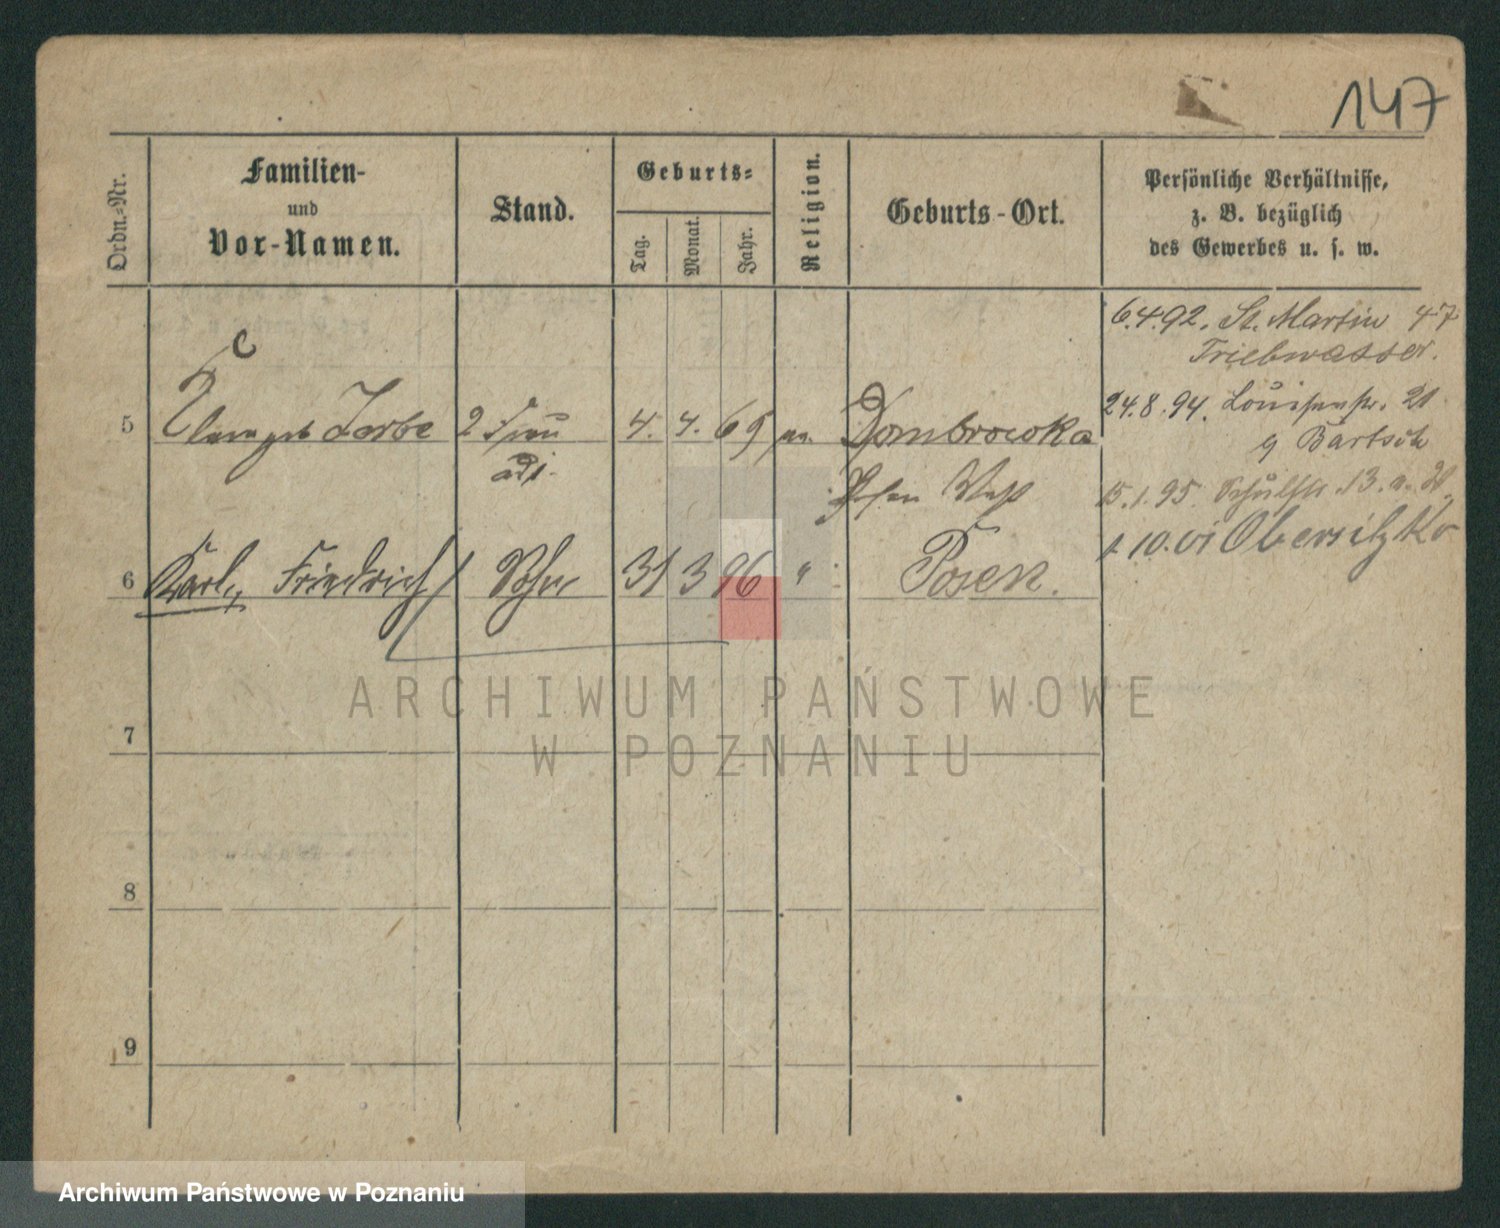 147
Ordn.-Nr.
Familien-
und
Vor-Namen.
Stand.
Geburts-
Tag.
Monat.
Jahr.
Religion.
Geburts-Ort.
Persönliche Verhältnisse,
z. B. bezüglich
des Gewerbes u. s. w.
6.4.92. St. Martin 47
Triebwasser.
24.8.94. Louisenstr. 21
Bartsch
5 geb Zerbe 2 Frau 4. 4. 69 Dombrowka
15.1.95 Schulstr. 13.
10.VI Obersitzko
6 Karl, Friedrich Sohn 31 3 96 " Posen.
7
8
9
ARCHIWUM PAŃSTWOWE
W POZNANIU
Archiwum Państwowe w Poznaniu